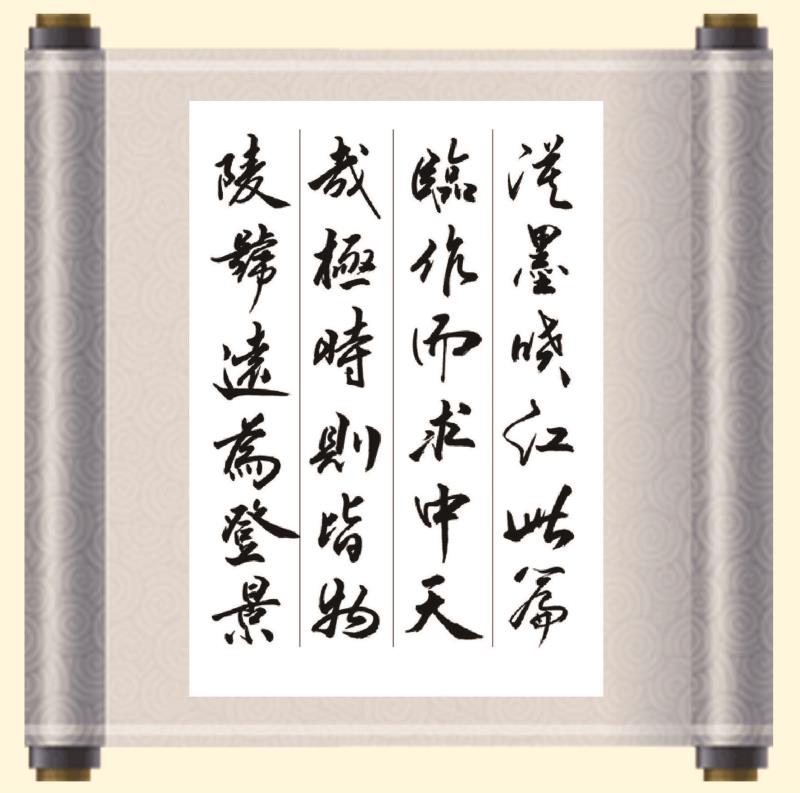 墨曉江此篇
臨作而求中天
哉極時則皆物
陵號遠為登景